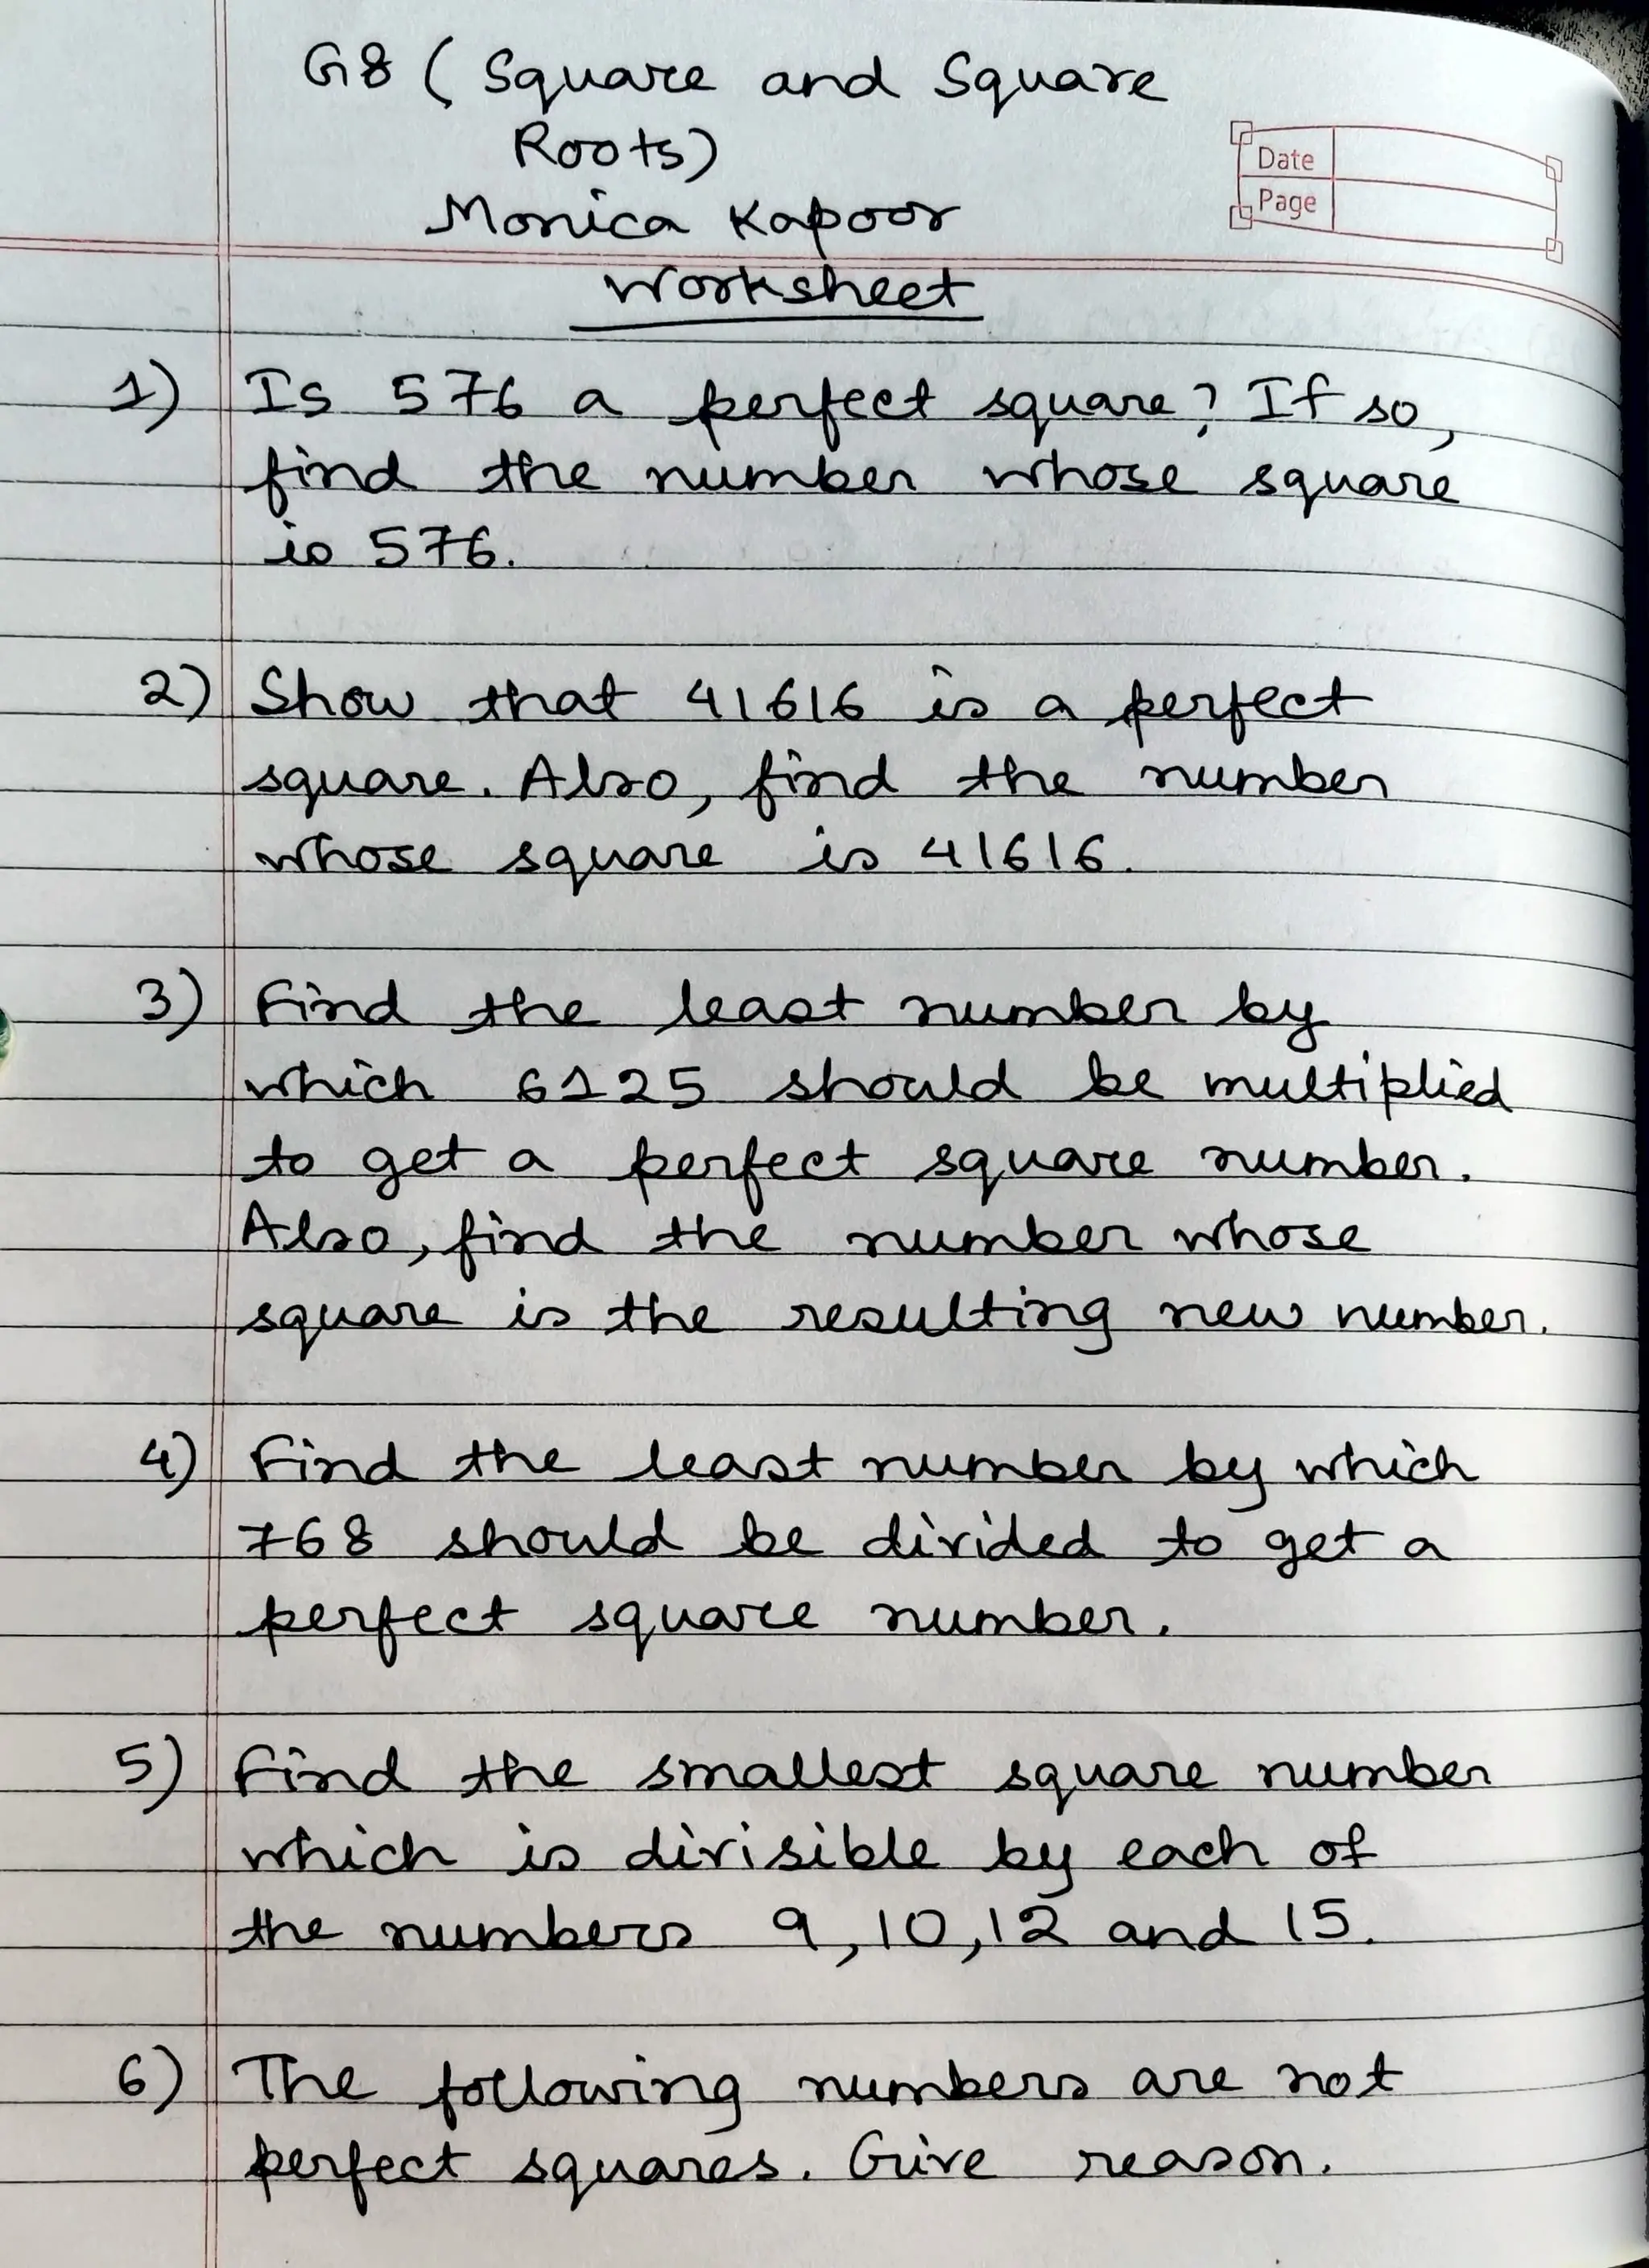 G8 ( Square and Square
Roots)
Date
Page
Monica Kapoor
Worksheet
1) Is 576 a perfect square? If so,
find the number whose square
is 576.
2) Show that 41616 is a perfect
square. Also, find the number
whose square is 41616.
3) Find the least number by
which 6125 should be multiplied
to get a perfect square number.
Also, find the number whose
square is the resulting new number.
4) Find the least number by which
768 should be divided to get a
perfect square number.
5) Find the smallest square number
which is divisible by each of
the numbers 9, 10, 12 and 15.
6) The following numbers are not
perfect squares. Give reason.